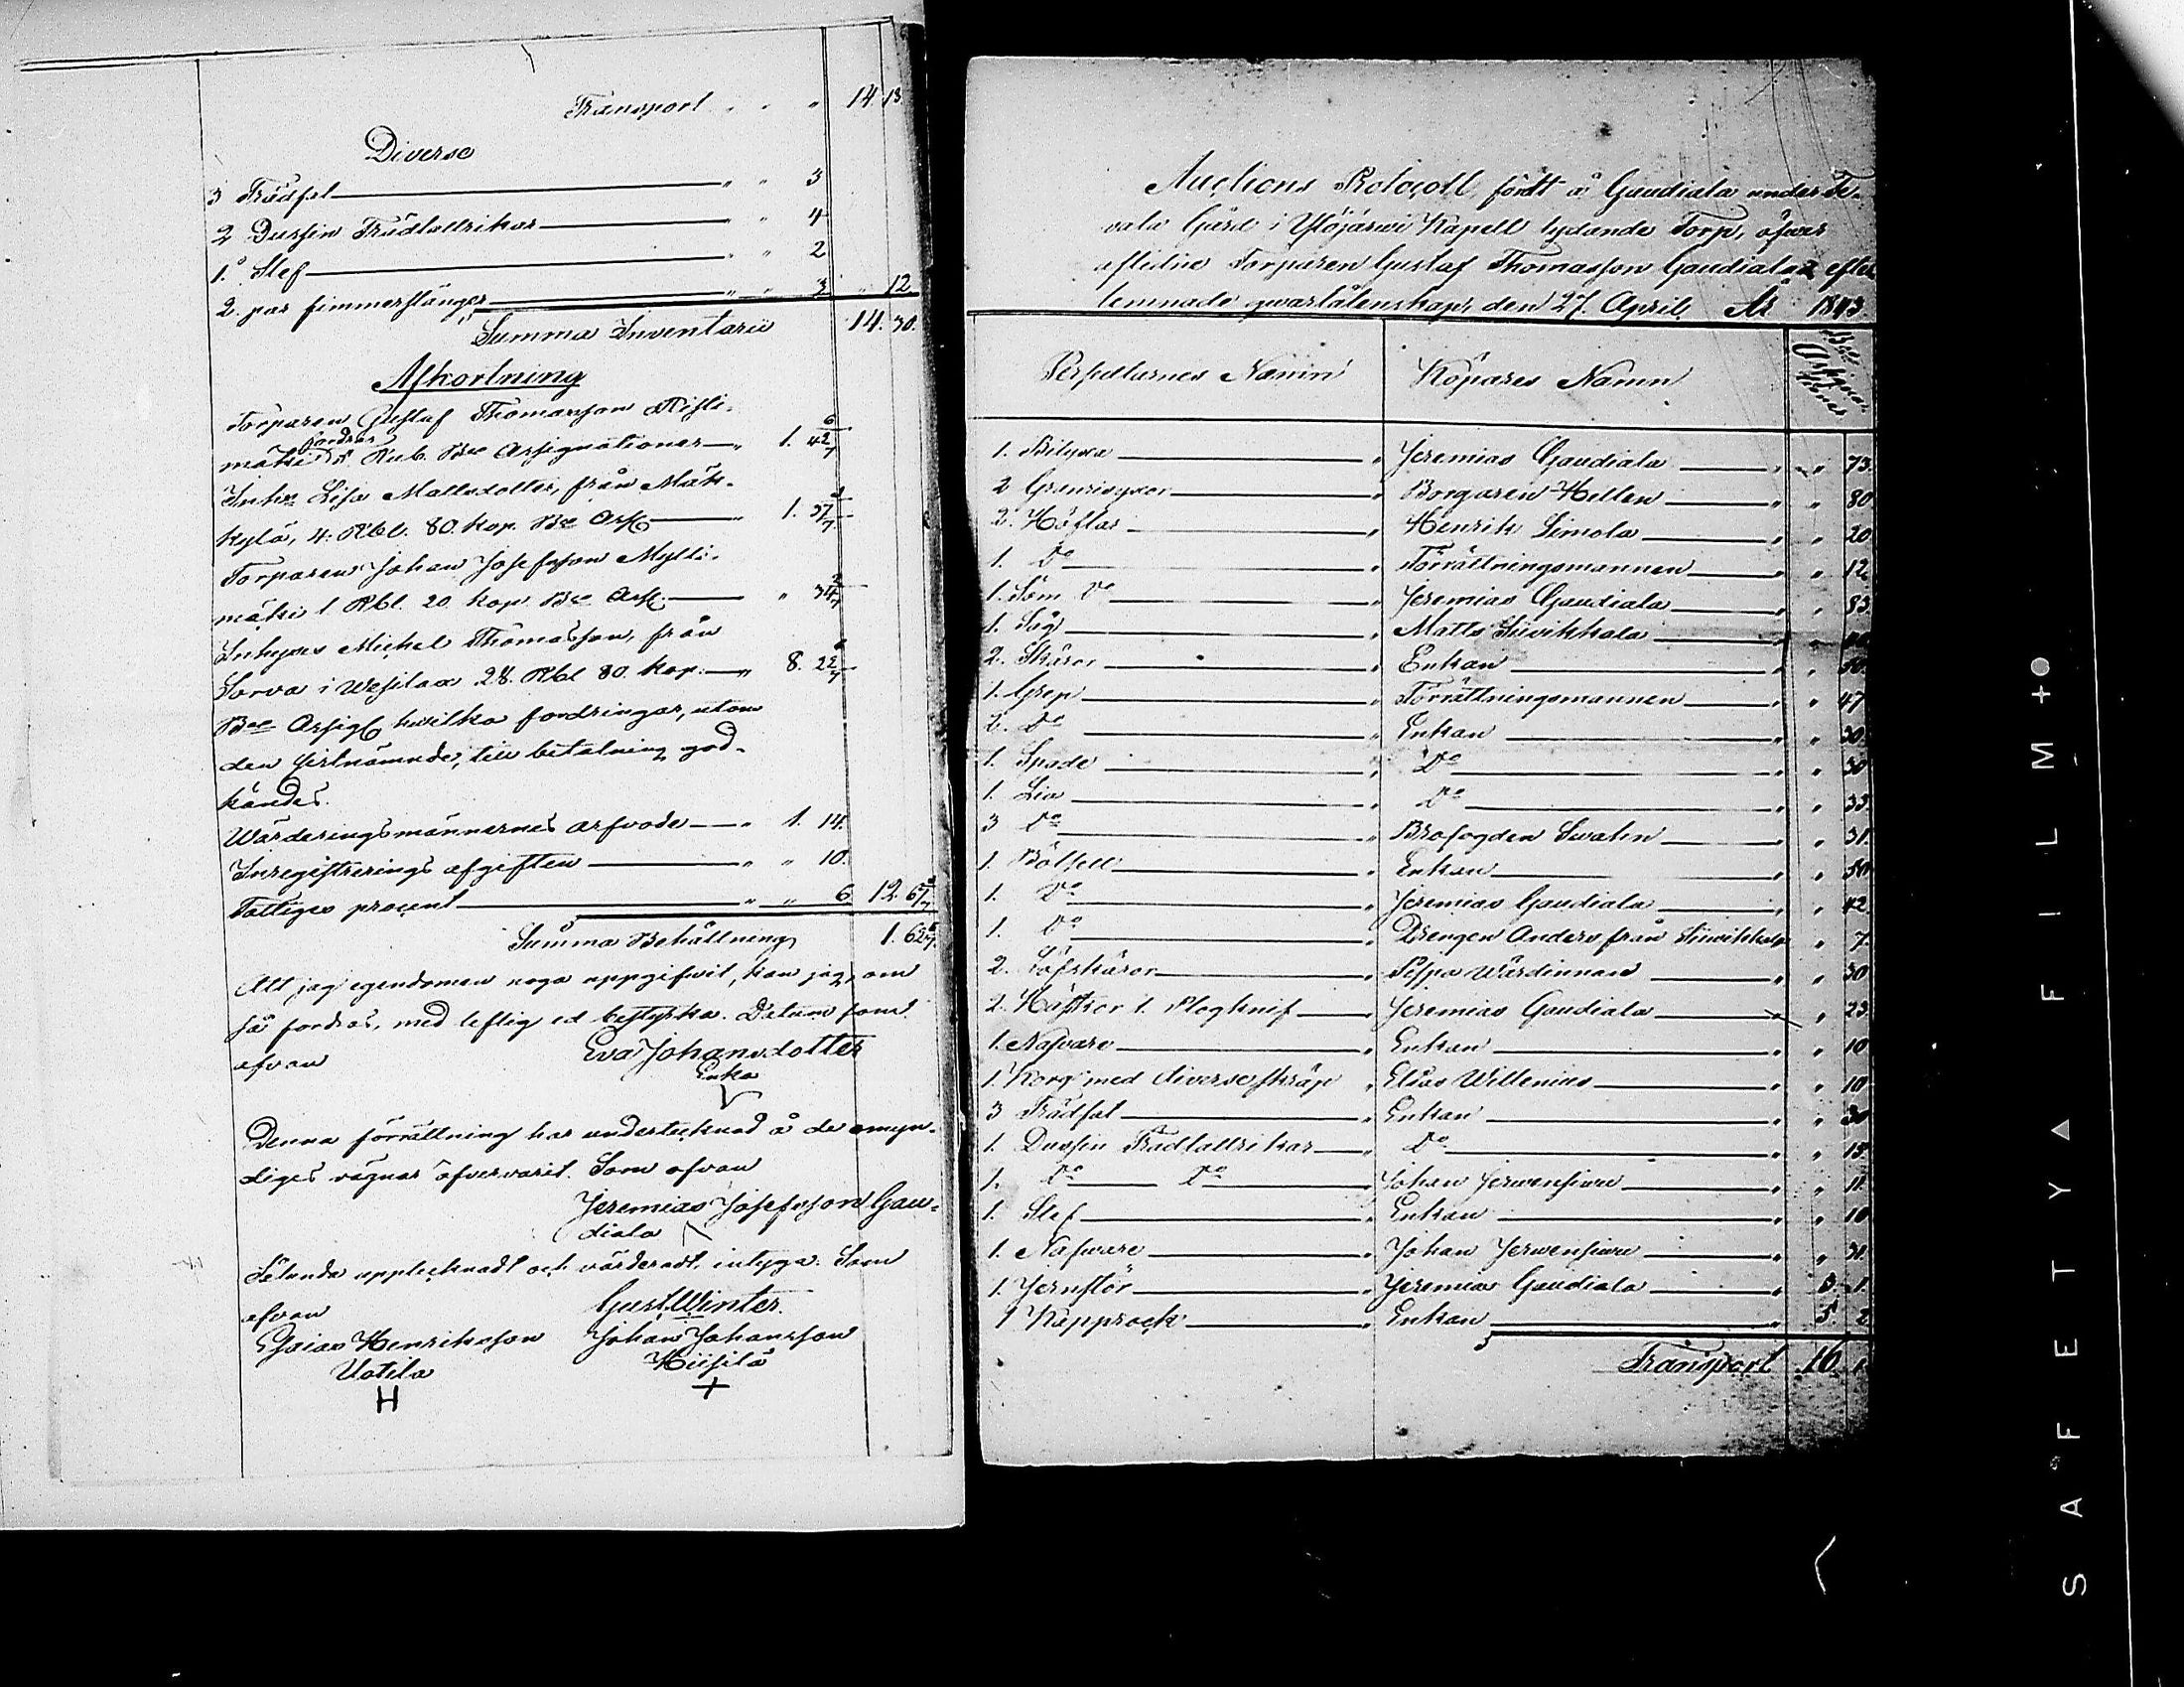 Transport " 14. 18.
Diverse
3 Trädfat " " 3
2 Dussin Trädtallrikar " " 4
1. Slef " " 2
2. par fimmerstänger " " 3 " 12
Summa Inventarii 14. 30.
Afkortning
Torparen Gustaf Thomasson
mäki fordrar 5. Rub. Bco Assignationer " 1. 42 6/7
Inhs Lisa Mattsdotter, från Mäk-
kylä, 4. Rbl. 80. kop. Bco Assg " 1. 37 1/7
Torparen Johan Josefsson Mylli-
mäki 1 Rbl. 20. kop. Bco Assg. " 34 2/7
Inhyses Michel Thomasson, från
Sorva i Wesilax 28. Rbl 80. kop. " 8. 22 6/7
Bco Assig hvilka fordringar, utom
den sistnämnde, till betalning god-
kändes.
Wärderingsmännernes arfvode " 1. 14.
Inregistrerings afgiften " " 10.
Fattiges procent " " 6 12. 67
Summa Behållning 1. 62
Att jag egendomen noga uppgifvit, kan jag, om
så fordras, med liflig ed bestyrka. Datum som
ofvan Eva Johansdotter
Enka
Denna förrättning har undertecknad å de omyn-
diges vägnar öfvervarit. Som ofvan
Jeremias Josefsson Gau-
diala
Sålunda upptecknadt och värderadt, intyga. Som
ofvan Gust. Winter.
Esaias Henriksson Johan Johansson
Uotila Hiisilä
H +
Auctions Protocoll, fördt å Gaudiala under Te-
vala Gård i Ylöjärwi Kapell lydande Torp, öfver
aflidne Torparen Gustaf Thomasson Gaudialas efter
lemnade qwarlåtenskap, den 27. April År 1843.
Persedlarnes Namn Köpares Namn Bco Assignationer
1. Bilyxa " Jeremias Gaudiala " " 73.
2 Granrisyxor " Borgaren Hellen " " 80
2. Höflar " Henrik Simola " " 20
1. Do " Förrättningsmannen " " 12
1. Söm Do " Jeremias Gaudiala " " 83.
1. Såg " Matts Siivikkala "
2. Skäror " Enkan "
1. Grep " Förrättningsmannen " " 47
2. Do " Enkan " " 20.
1. Spade " Do " " 30
1. Lia " Do " " 33.
3 Do " Brofogden Swahn " " 31.
1. Bölfell " Enkan "
1. Do " Jeremias Gaudiala " " 42.
1. Do " Drengen Anders från Siivikkala " 7.
2. Löfskäror " Seppä Wärdinnan " " 30
2. Häktor 1. Plogknif " Jeremias Gaudiala " " 23.
1. Nafvare " Enkan " " 10
1. Korg med diverse skräp " Elias Willenius " " 10
3 Trädfat " Enkan " " 30
1. Dussin Trädtallrikar " Do " " 15.
1. Do Do " Johan Jerwensivu " " 11.
1. Slef " Enkan " " 10
1. Nafvare " Johan Jerwensivu " " 31.
1. Jernstör " Jeremias Gaudiala " 3. 1.
1 Kapprock " Enkan " 5. 2
Transport 16.
SAFETY FILM